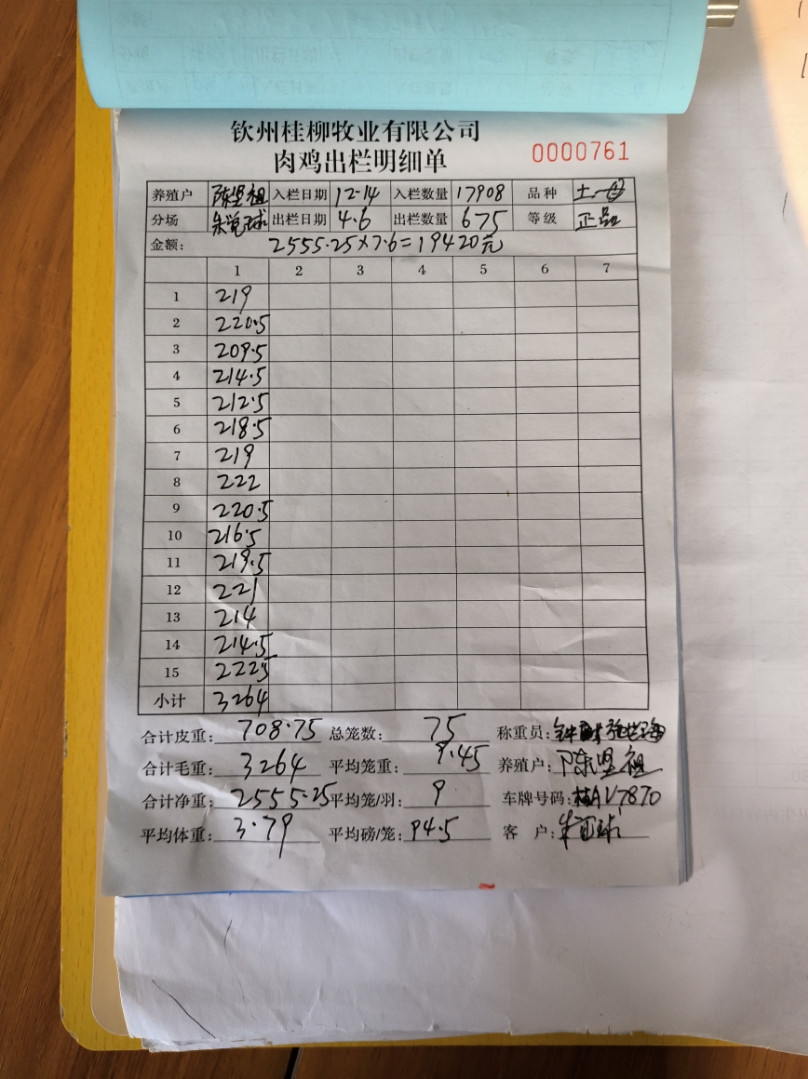 钦州桂柳牧业有限公司
肉鸡出栏明细单 0000761
养殖户 陈坚祖 入栏日期 12-14 入栏数量 17908 品种 土
分场 出栏日期 4.6 出栏数量 675 等级 正品
金额: 2555.25×7.6=19420元
1 2 3 4 5 6 7
1 219
2 220.5
3 209.5
4 214.5
5 212.5
6 218.5
7 219
8 222
9 220.5
10 216.5
11 219.5
12 221
13 214
14 214.5
15 222.5
小计 3264
合计皮重: 708.75 总笼数: 75 称重员:
合计毛重: 3264 平均笼重: 9.45 养殖户: 陈坚祖
合计净重: 2555.25 平均笼/羽: 9 车牌号码: 桂AV7870
平均体重: 3.79 平均磅/笼: 94.5 客 户: